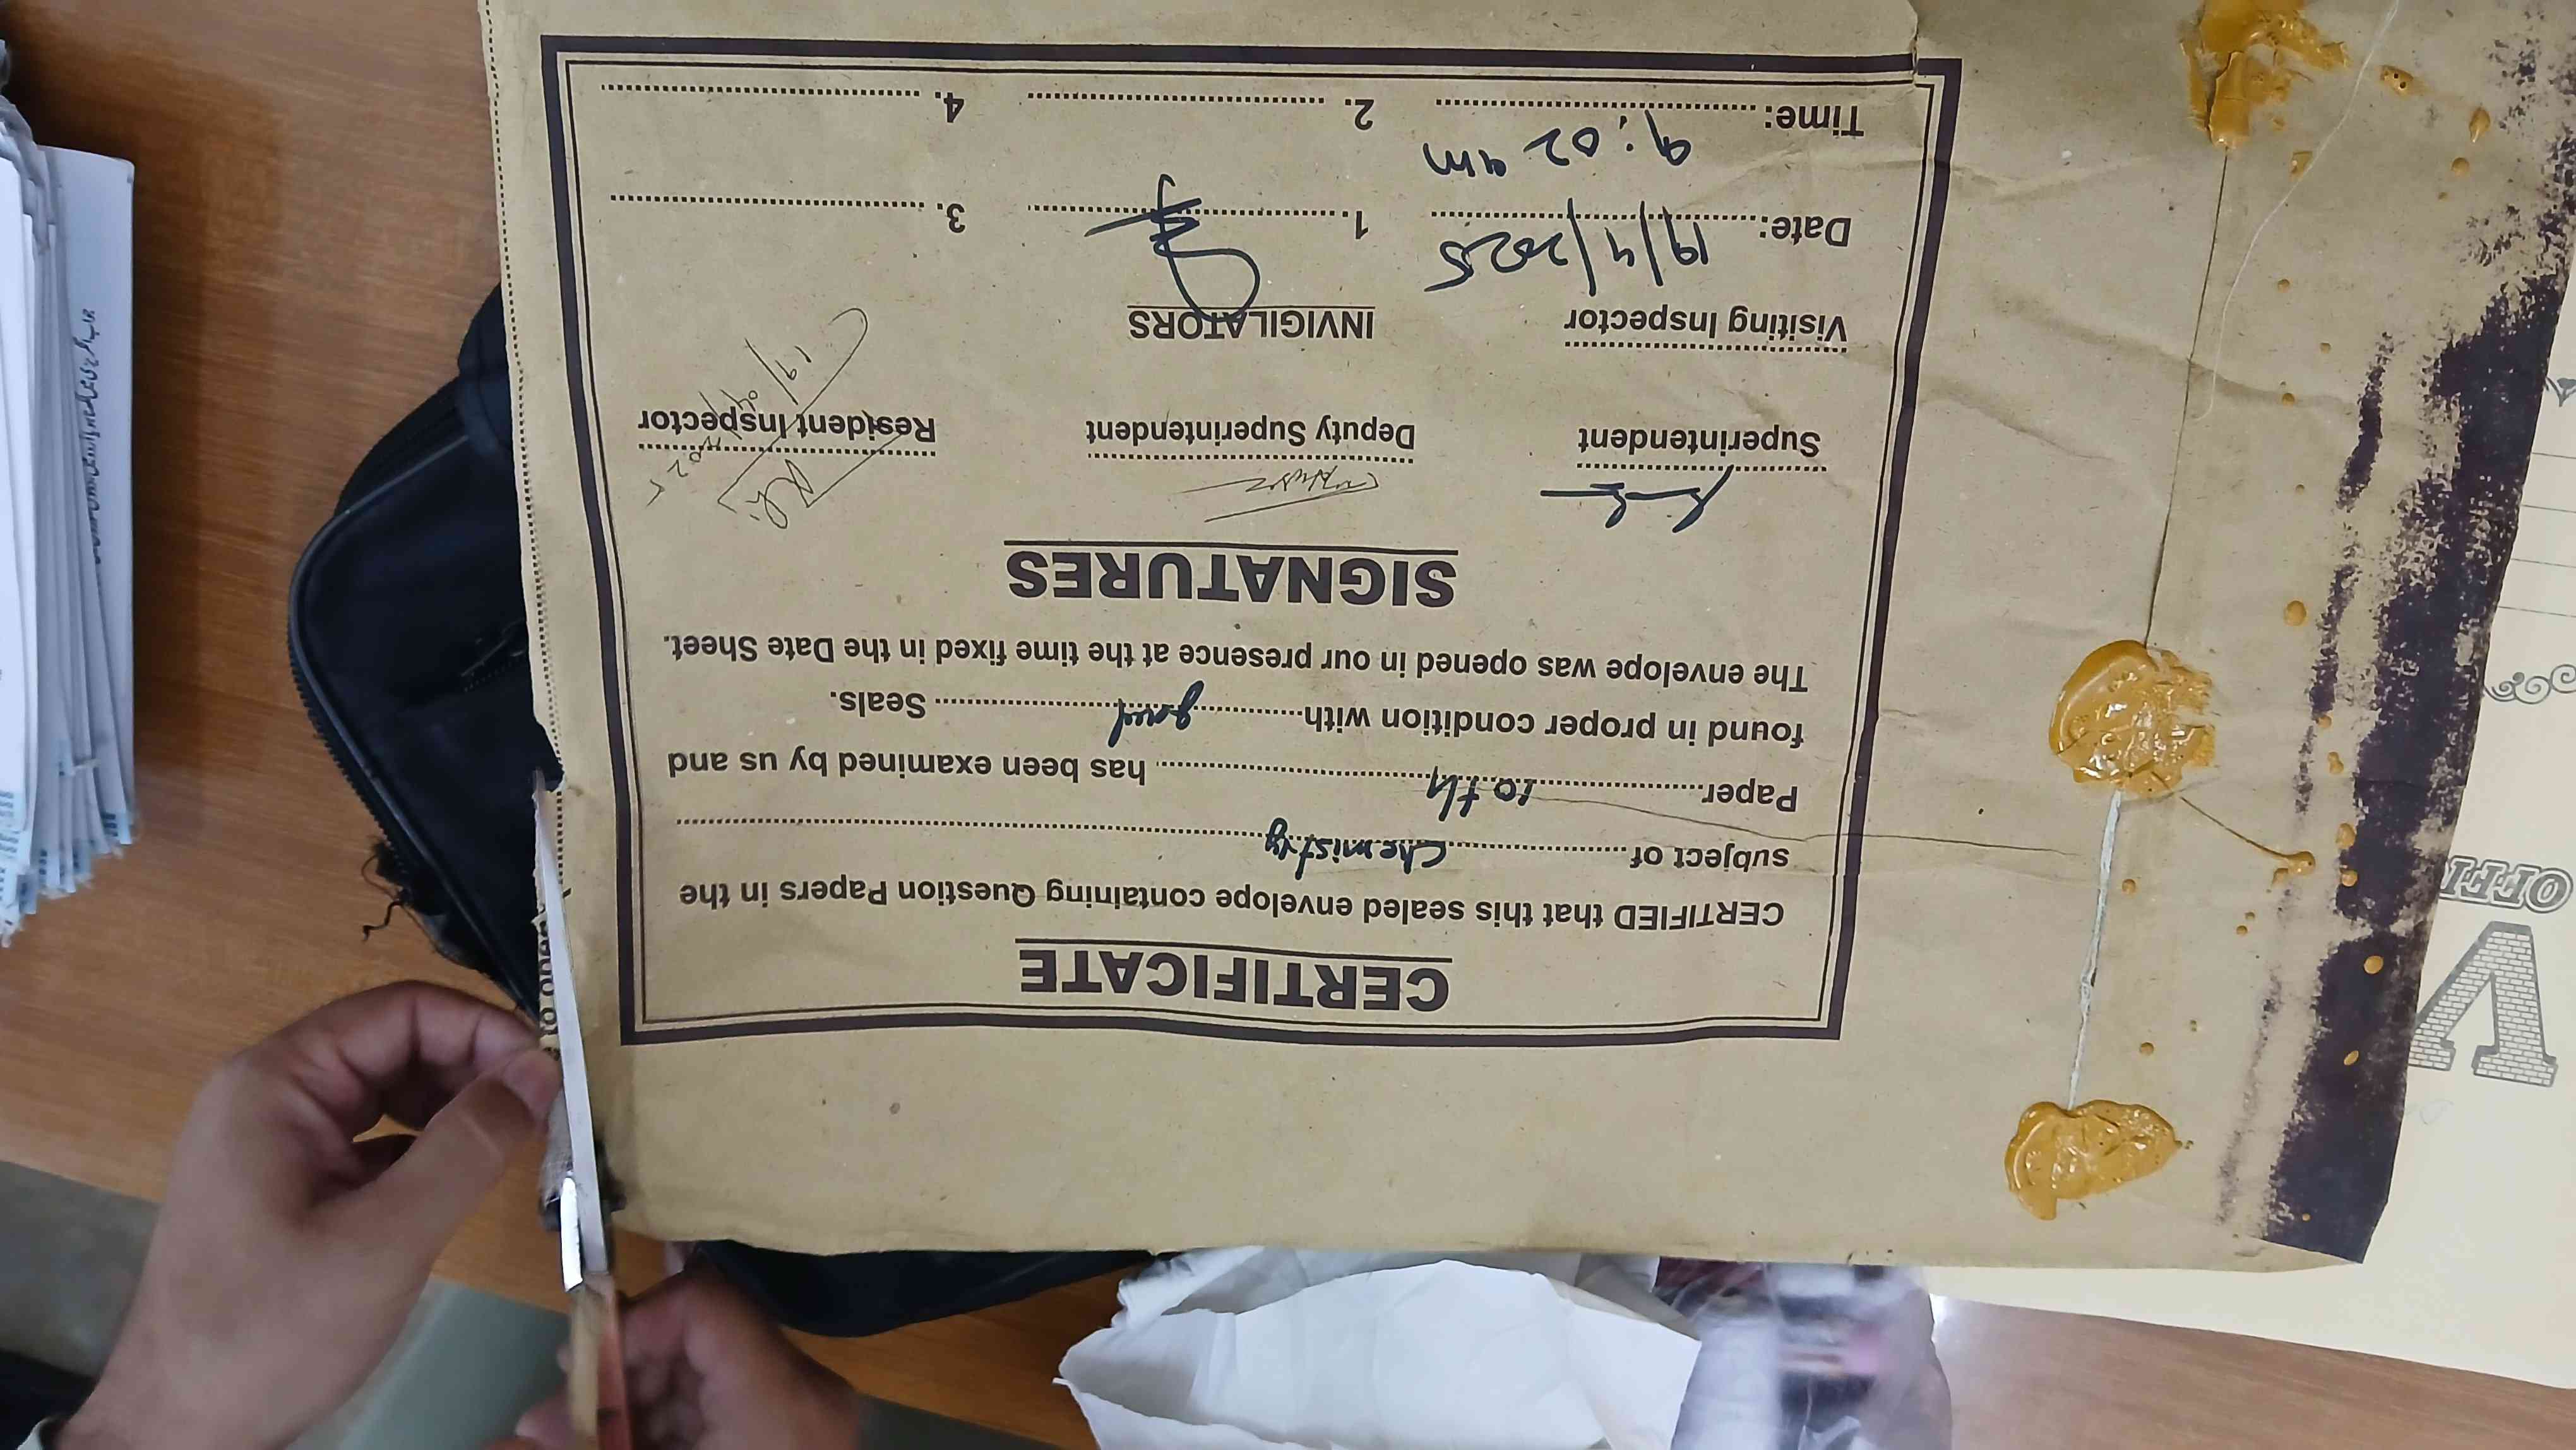 CERTIFICATE
CERTIFIED that this sealed envelope containing Question Papers in the
subject of Chemistry
Paper 10th has been examined by us and
found in proper condition with good Seals.
The envelope was opened in our presence at the time fixed in the Date Sheet.
SIGNATURES
Superintendent Deputy Superintendent Resident Inspector
19/04/2025
Visiting Inspector INVIGILATORS
Date: 19/4/2025 1. 3.
Time: 9:02 am 2. 4.
V